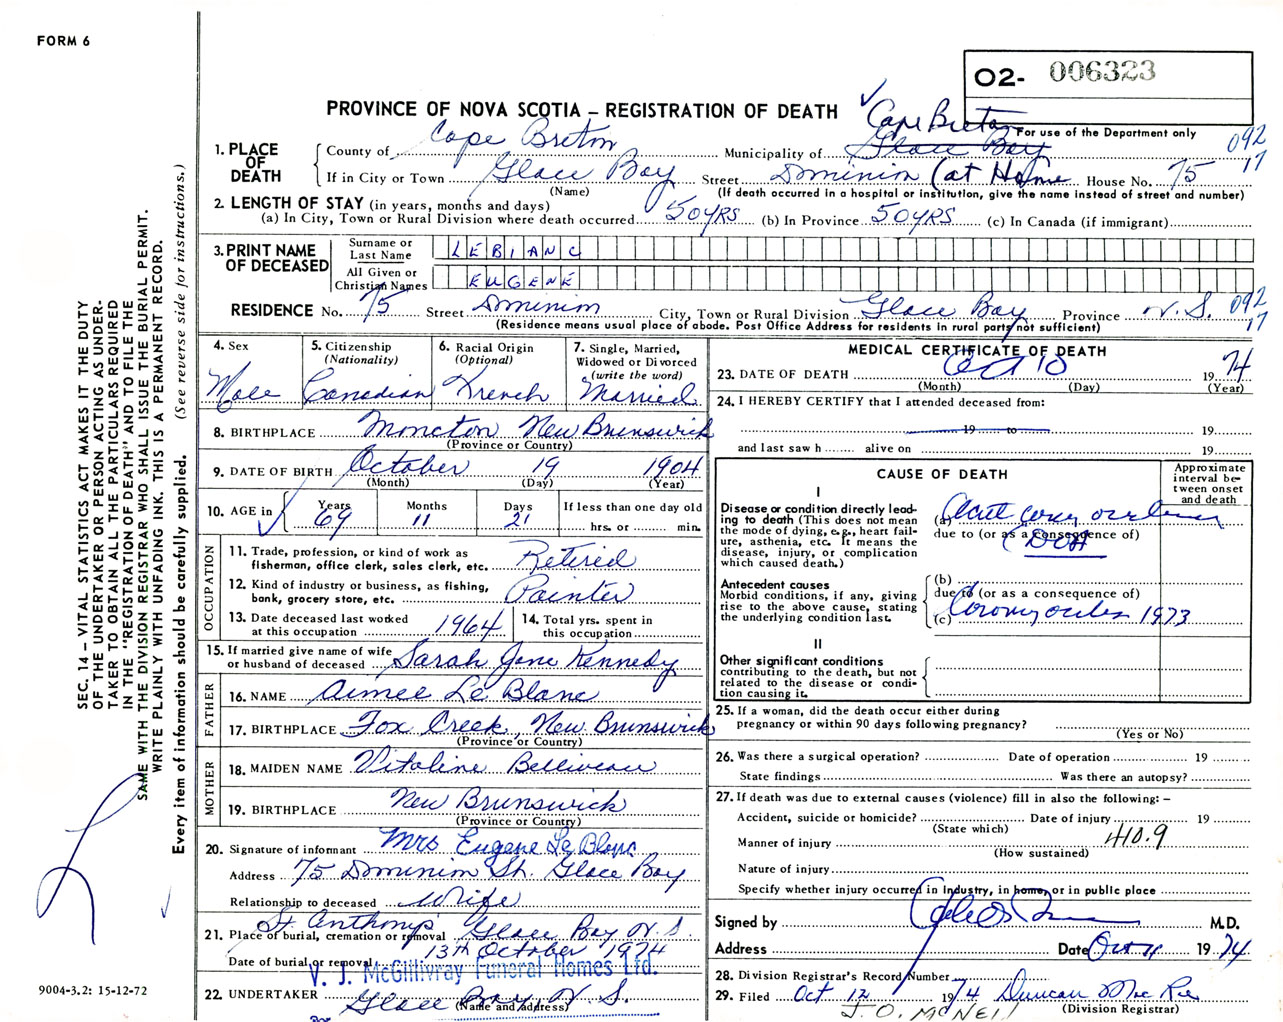 FORM 6
O2- 006323
PROVINCE OF NOVA SCOTIA – REGISTRATION OF DEATH
For use of the Department only
Cape Breton
1. PLACE OF DEATH County of Cape Breton Municipality of Glace Bay 092
If in City or Town Glace Bay Street Dominion (at Home House No. 75 17
(Name) (If death occurred in a hospital or institution, give the name instead of street and number)
2. LENGTH OF STAY (in years, months and days)
(a) In City, Town or Rural Division where death occurred 50 YRS (b) In Province 50 YRS (c) In Canada (if immigrant)
3. PRINT NAME OF DECEASED Surname or Last Name LEBLANC
All Given or Christian Names EUGENE
RESIDENCE No. 75 Street Dominion City, Town or Rural Division Glace Bay Province N.S. 092 17
(Residence means usual place of abode. Post Office Address for residents in rural parts not sufficient)
4. Sex Male
5. Citizenship (Nationality) Canadian
6. Racial Origin (Optional) French
7. Single, Married, Widowed or Divorced (write the word) Married
8. BIRTHPLACE Moncton New Brunswick
(Province or Country)
9. DATE OF BIRTH October 19 1904
(Month) (Day) (Year)
10. AGE in Years 69 Months 11 Days 21 If less than one day old hrs. or min.
OCCUPATION
11. Trade, profession, or kind of work as fisherman, office clerk, sales clerk, etc. Retired
12. Kind of industry or business, as fishing, bank, grocery store, etc. Painter
13. Date deceased last worked at this occupation 1964
14. Total yrs. spent in this occupation
15. If married give name of wife or husband of deceased Sarah Jane Kennedy
FATHER
16. NAME Aimee Le Blanc
17. BIRTHPLACE Fox Creek, New Brunswick
(Province or Country)
MOTHER
18. MAIDEN NAME Vitaline Belliveau
19. BIRTHPLACE New Brunswick
(Province or Country)
20. Signature of informant Mrs Eugene Le Blanc
Address 75 Dominion St. Glace Bay
Relationship to deceased Wife
21. Place of burial, cremation or removal St Anthonys Glace Bay N.S.
Date of burial or removal 13th October 1974
V. J. McGillivray Funeral Homes Ltd.
22. UNDERTAKER Glace Bay, N.S.
(Name and address)
MEDICAL CERTIFICATE OF DEATH
23. DATE OF DEATH Oct 10 1974
(Month) (Day) (Year)
24. I HEREBY CERTIFY that I attended deceased from:
19 to 19
and last saw h alive on 19
CAUSE OF DEATH
Approximate interval between onset and death
I
Disease or condition directly leading to death (This does not mean the mode of dying, e.g., heart failure, asthenia, etc. It means the disease, injury, or complication which caused death.)
(a)
due to (or as a consequence of)
(DOA)
Antecedent causes
Morbid conditions, if any, giving rise to the above cause, stating the underlying condition last.
(b)
due to (or as a consequence of)
(c) 1973
II
Other significant conditions contributing to the death, but not related to the disease or condition causing it.
25. If a woman, did the death occur either during pregnancy or within 90 days following pregnancy?
(Yes or No)
26. Was there a surgical operation? Date of operation 19
State findings Was there an autopsy?
27. If death was due to external causes (violence) fill in also the following: –
Accident, suicide or homicide? Date of injury 19
(State which)
Manner of injury 410.9
(How sustained)
Nature of injury
Specify whether injury occurred in Industry, in home, or in public place
Signed by M.D.
Address Date Oct 11 1974
28. Division Registrar's Record Number
29. Filed Oct 12 1974 Duncan Mac Rae
(Division Registrar)
J.O. MCNEIL
SEC. 14 – VITAL STATISTICS ACT MAKES IT THE DUTY
OF THE UNDERTAKER OR PERSON ACTING AS UNDER-
TAKER TO OBTAIN ALL THE PARTICULARS REQUIRED
IN THE "REGISTRATION OF DEATH" AND TO FILE THE
SAME WITH THE DIVISION REGISTRAR WHO SHALL ISSUE THE BURIAL PERMIT.
WRITE PLAINLY WITH UNFADING INK. THIS IS A PERMANENT RECORD.
Every item of information should be carefully supplied. (See reverse side for instructions.)
9004-3.2: 15-12-72